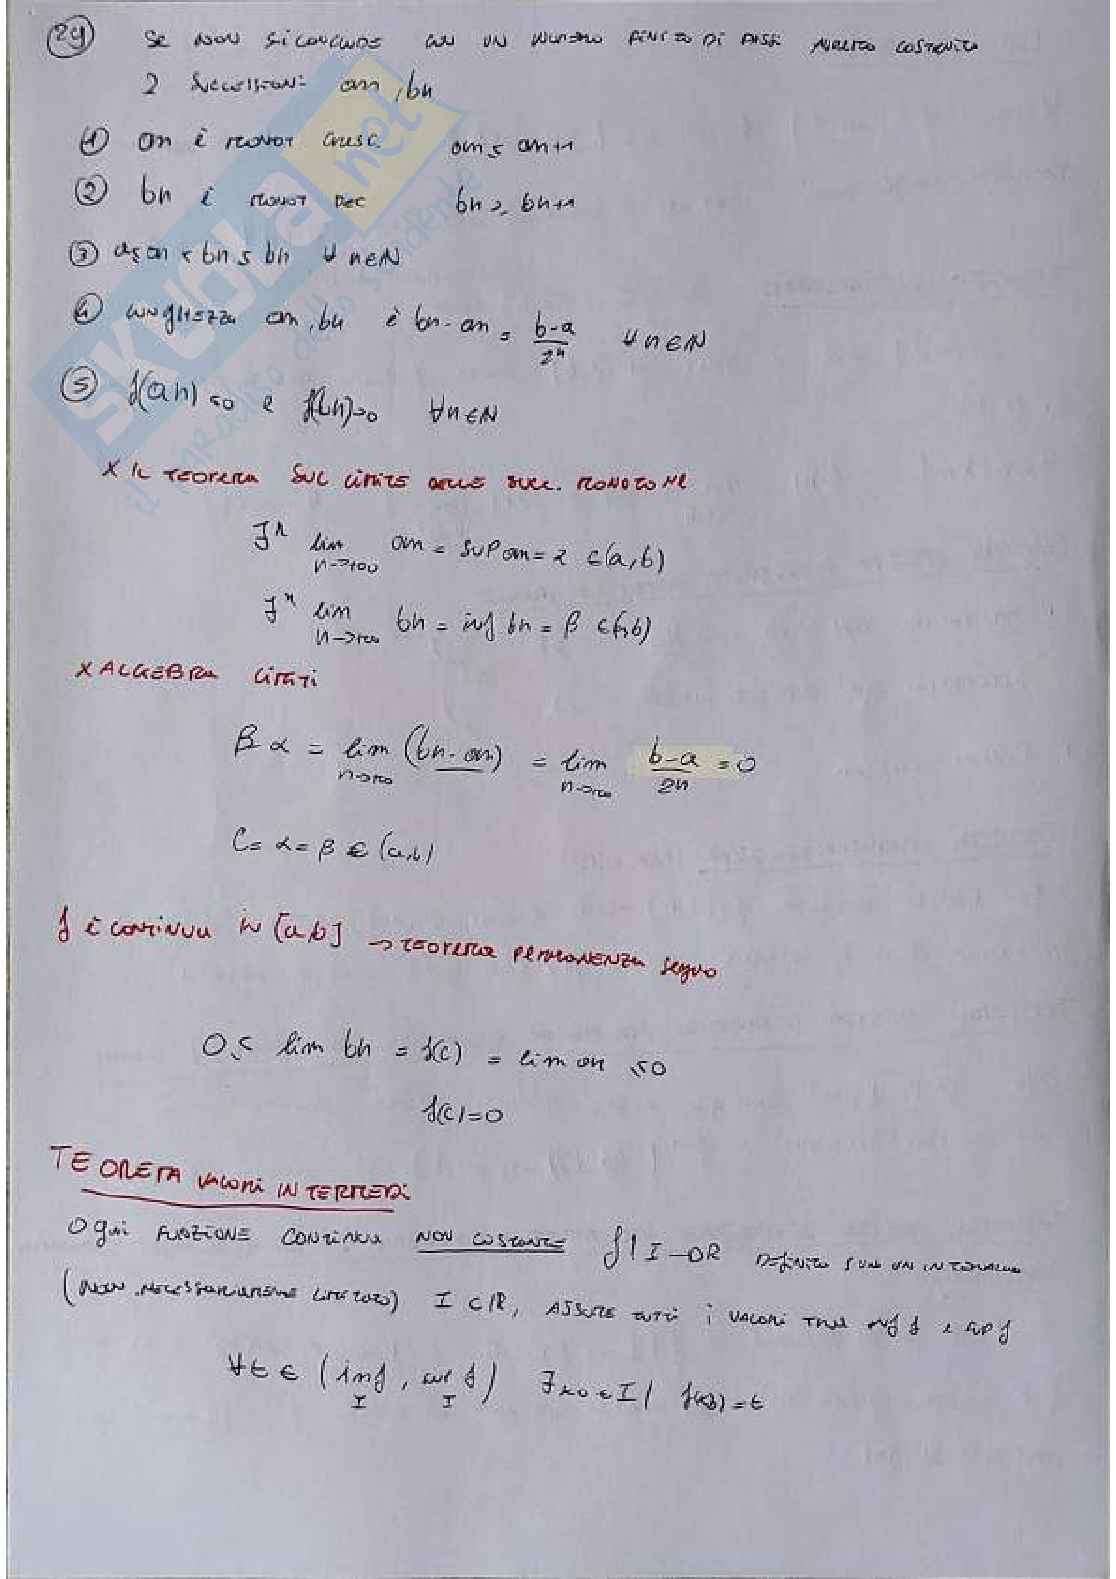 29 SE NON SI CONCLUDE IN UN NUMERO FINITO DI PASSI AVREMO COSTRUITO
2 successioni an, bn
① an è MONOT CRESC. an ≤ an+1
② bn è MONOT DEC bn ≥ bn+1
③ a ≤ an < bn ≤ bn ∀ n∈N
④ LUNGHEZZA an, bn è bn - an = b-a/2ⁿ ∀ n∈N
⑤ f(an) ≤0 e f(bn)>0 ∀n∈N
X IL TEOREMA SUL LIMITE DELLE SUCC. MONOTONE
lim n->+∞ an = SUP an = α ∈(a,b)
lim n->+∞ bn = inf bn = β ∈(a,b)
X ALGEBRA LIMITI
β α = lim n->+∞ (bn-an) = lim n->+∞ b-a/2n = 0
C = α = β ∈ (a,b)
f è CONTINUA IN [a,b] -> TEOREMA PERMANENZA segno
0 ≤ lim bn = f(c) = lim an ≤0
f(c)=0
TEOREMA VALORI INTERMEDI
Ogni FUNZIONE CONTINUA NON COSTANTE f: I->R DEFINITA SU UN INTERVALLO
(NON NECESSARIAMENTE LIMITATO) I ⊂ R, ASSUME TUTTI i VALORI TRA inf f e sup f
∀t ∈ (inf I, sup f I) ∃x0 ∈ I / f(x0) = t
SKUOLA.net
il paradiso dello studente